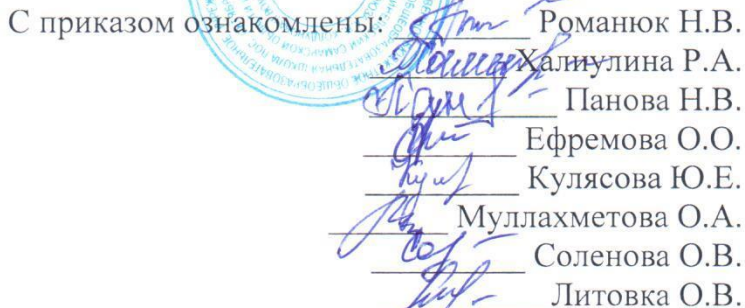 С приказом ознакомлены: Романюк Н.В.
Халиулина Р.А.
Панова Н.В.
Ефремова О.О.
Кулясова Ю.Е.
Муллахметова О.А.
Соленова О.В.
Литовка О.В.